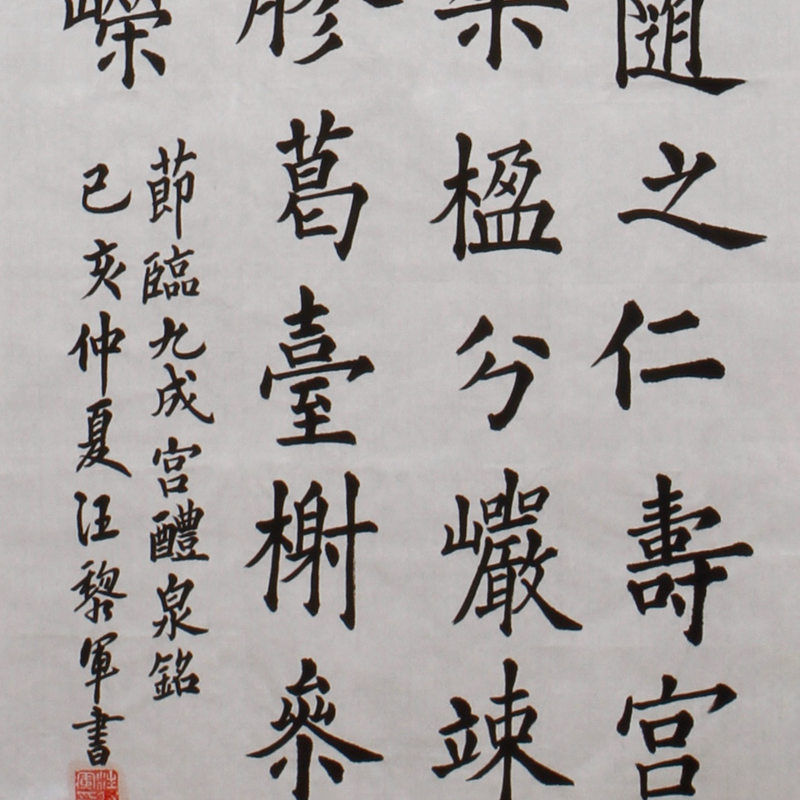 隨之仁壽宮
架楹分巖竦
膠葛臺榭參
嶸
節臨九成宮醴泉銘
己亥仲夏汪黎軍書